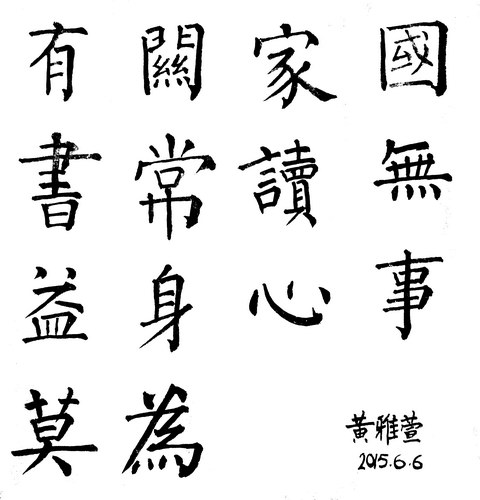 有關家國
書常讀無
益身心事
莫為
黃雅萱
2015.6.6